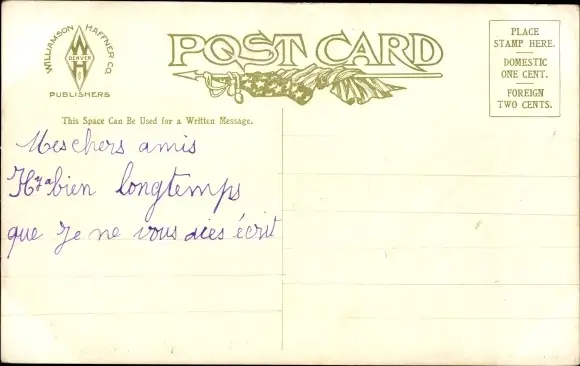 WILLIAMSON HAFFNER CO.
W
DENVER
H
PUBLISHERS
POST CARD
PLACE
STAMP HERE.
DOMESTIC
ONE CENT.
FOREIGN
TWO CENTS.
This Space Can Be Used for a Written Message.
Mes chers amis
Hya bien longtemps
que Je ne vous aies écrit